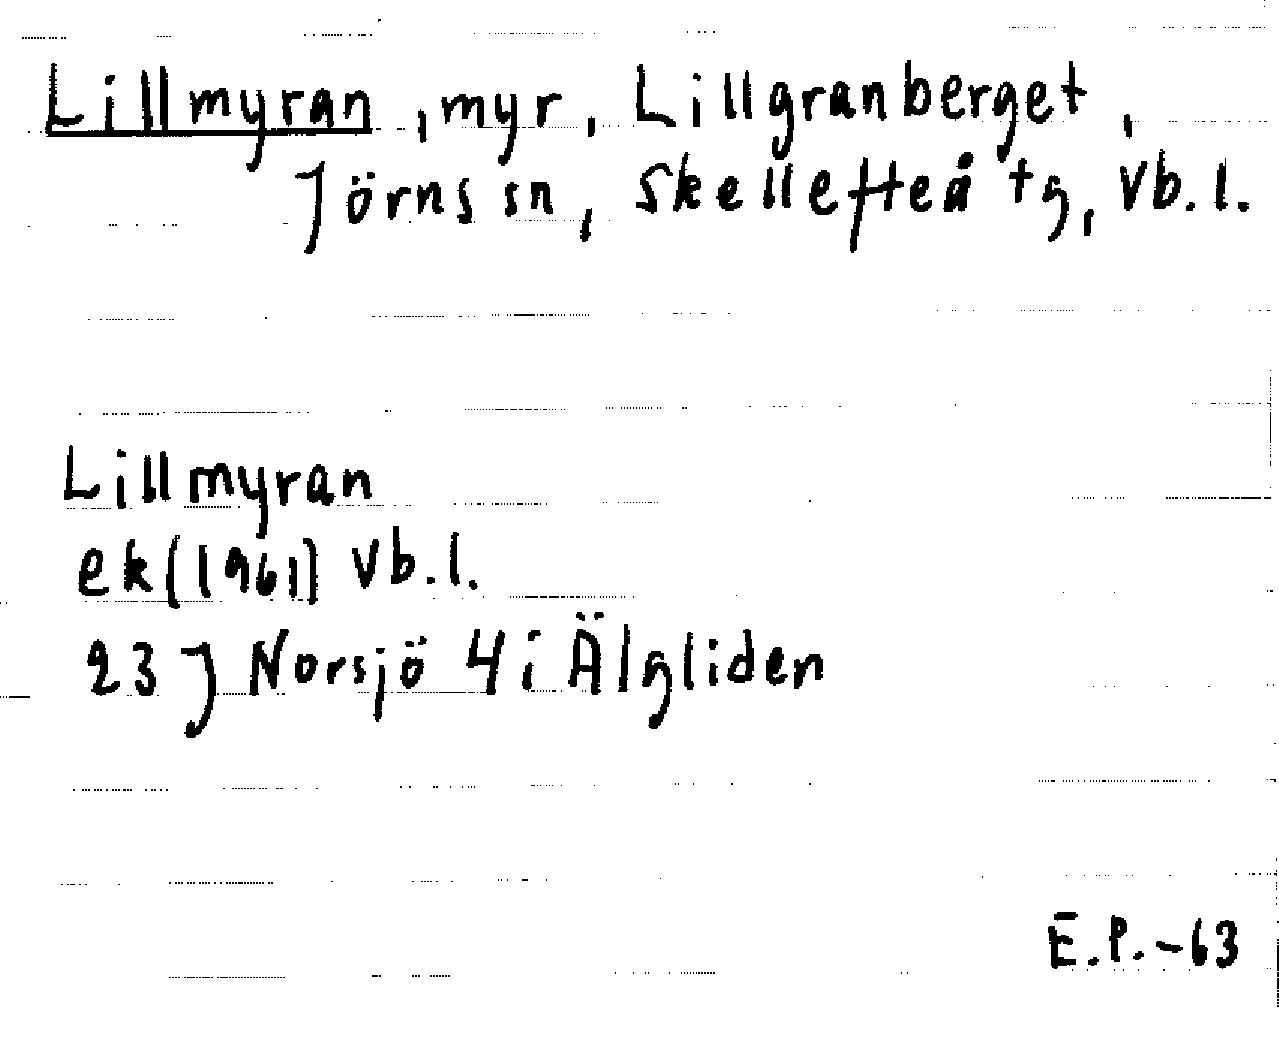 Lillmyran, myr, Lillgranberget,
Jörns sn, Skellefteå tg, Vb.l.
Lillmyran
ek(1961) Vb.l.
23 J Norsjö 4 i Älgliden
E.P.-63